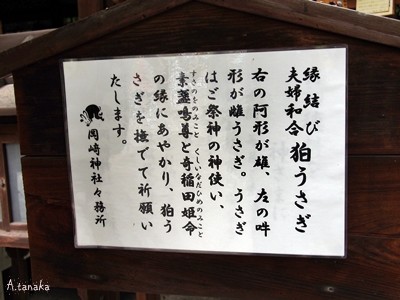 縁結び
夫婦和合 狛うさぎ
右の阿形が雄、左の吽
形が雌うさぎ。うさぎ
はご祭神の神使い、
素盞鳴尊と奇稲田姫命
すさのをのみこと くしいなだひめのみこと
の縁にあやかり、狛う
さぎを撫でて祈願い
たします。
岡崎神社々務所
A.tanaka